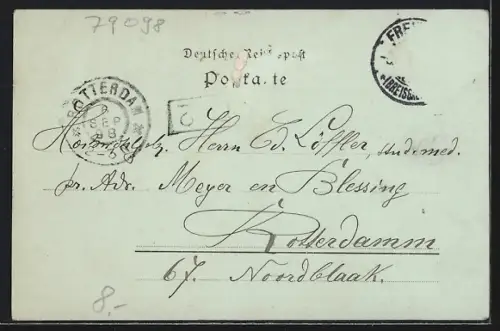 79098
Deutsche Reichspost
Postkarte
FRE
(BREISG
ROTTERDAM
6
SEP
98
Herrn Ed. Löffler, stud. med.
pr. Adr. Meyer en Blessing
Rotterdamm
67. Noordblaak.
8.-